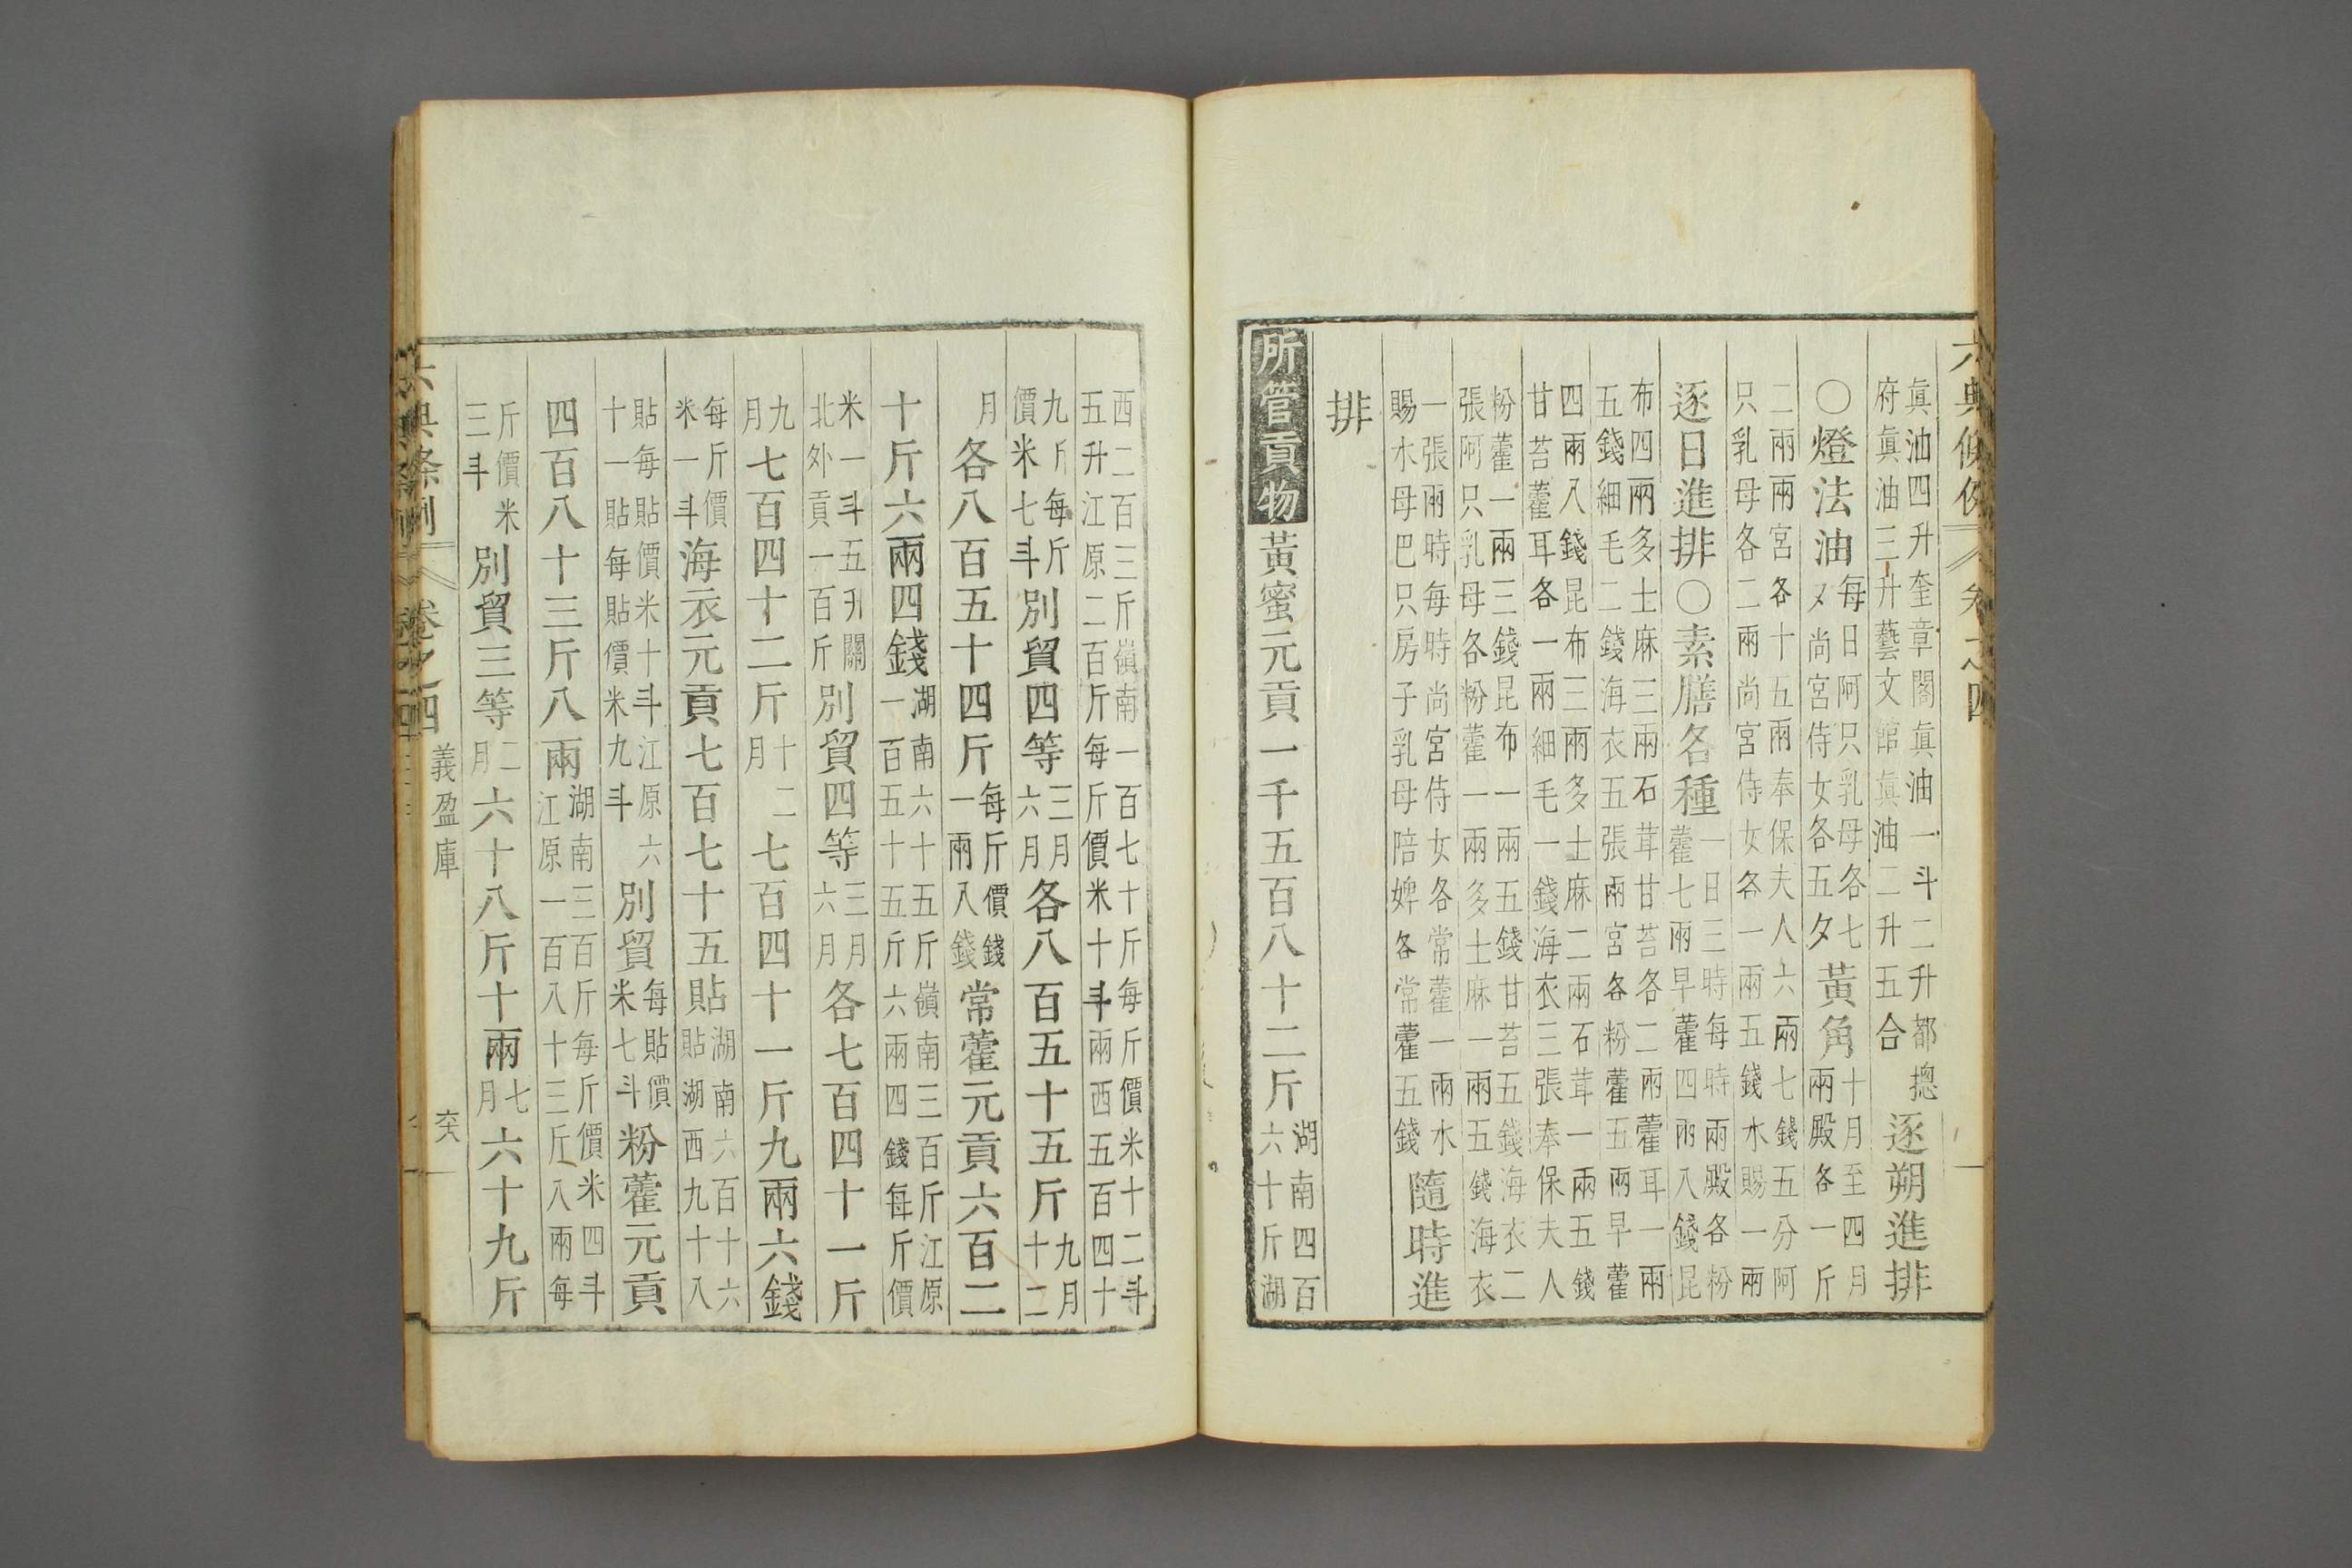 眞油四升奎章閣眞油一斗二升都摠
府眞油三升藝文館眞油二升五合
逐朔進排
○燈法油
每日阿只乳母各七
又尚宮侍女各五夕
黃角
十月至四月
兩殿各一斤
二兩兩宮各十五兩奉保夫人六兩七錢五分阿
只乳母各二兩尚宮侍女各一兩五錢水賜一兩
逐日進排○素膳各種
一日三時每時兩殿各粉
藿七兩早藿四兩八錢昆
布四兩多士麻三兩石茸甘苔各二兩藿耳一兩
五錢細毛二錢海衣五張兩宮各粉藿五兩早藿
四兩八錢昆布三兩多士麻二兩石茸一兩五錢
甘苔藿耳各一兩細毛一錢海衣三張奉保夫人
粉藿一兩三錢昆布一兩五錢甘苔五錢海衣二
張阿只乳母各粉藿一兩多士麻一兩五錢海衣
一張兩時每時尚宮侍女各常藿一兩水
賜水母巴只房子乳母陪婢各常藿五錢
隨時進
排
所管貢物
黃蜜元貢一千五百八十二斤
湖南四百
六十斤湖
西二百三斤嶺南一百七十斤每斤價米十二斗
五升江原二百斤每斤價米十斗兩西五百四十
九斤每斤
價米七斗
別貿四等
三月
六月
各八百五十五斤
九月
十二
月
各八百五十四斤
每斤價錢
一兩八錢
常藿元貢六百二
十斤六兩四錢
湖南六十五斤嶺南三百斤江原
一百五十五斤六兩四錢每斤價
米一斗五升關
北外貢一百斤
別貿四等
三月
六月
各七百四十一斤
九
月
七百四十二斤
十二
月
七百四十一斤九兩六錢
每斤價
米一斗
海衣元貢七百七十五貼
湖南六百十六
貼湖西九十八
貼每貼價米十斗江原六
十一貼每貼價米九斗
別貿
每貼價
米七斗
粉藿元貢
四百八十三斤八兩
湖南三百斤每斤價米四斗
江原一百八十三斤八兩每
斤價米
三斗
別貿三等
二
月
六十八斤十兩
七
月
六十九斤
六典條例
卷之四
義盈庫